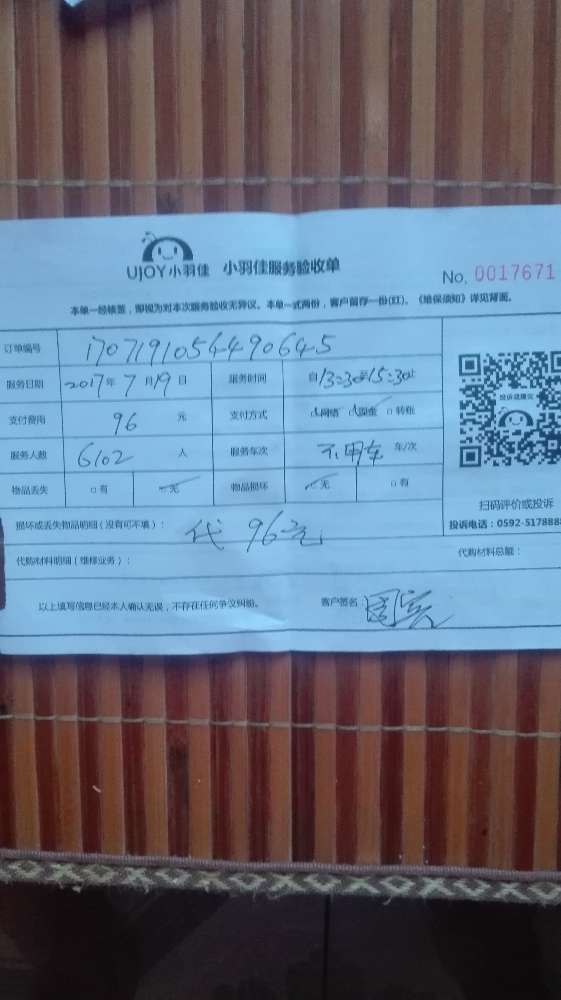 UJOY小羽佳 小羽佳服务验收单
No. 0017671
本单一经核签，即视为对本次服务验收无异议。本单一式两份，客户留存一份(红)。《维保须知》详见背面。
订单编号 1707191054490645
服务日期 2017年7月19日 服务时间 自13:30至15:30止
支付费用 96 元 支付方式 网络 现金 □转账
服务人数 6102 人 服务车次 不用车 车/次
物品丢失 □有 无 物品损坏 无 □有
投诉或建议
扫码评价或投诉
投诉电话：0592-517888
损坏或丢失物品明细（没有可不填）： 代 96元
代购材料明细（维修业务）： 代购材料总额：
以上填写信息已经本人确认无误，不存在任何争议纠纷。 客户签名：